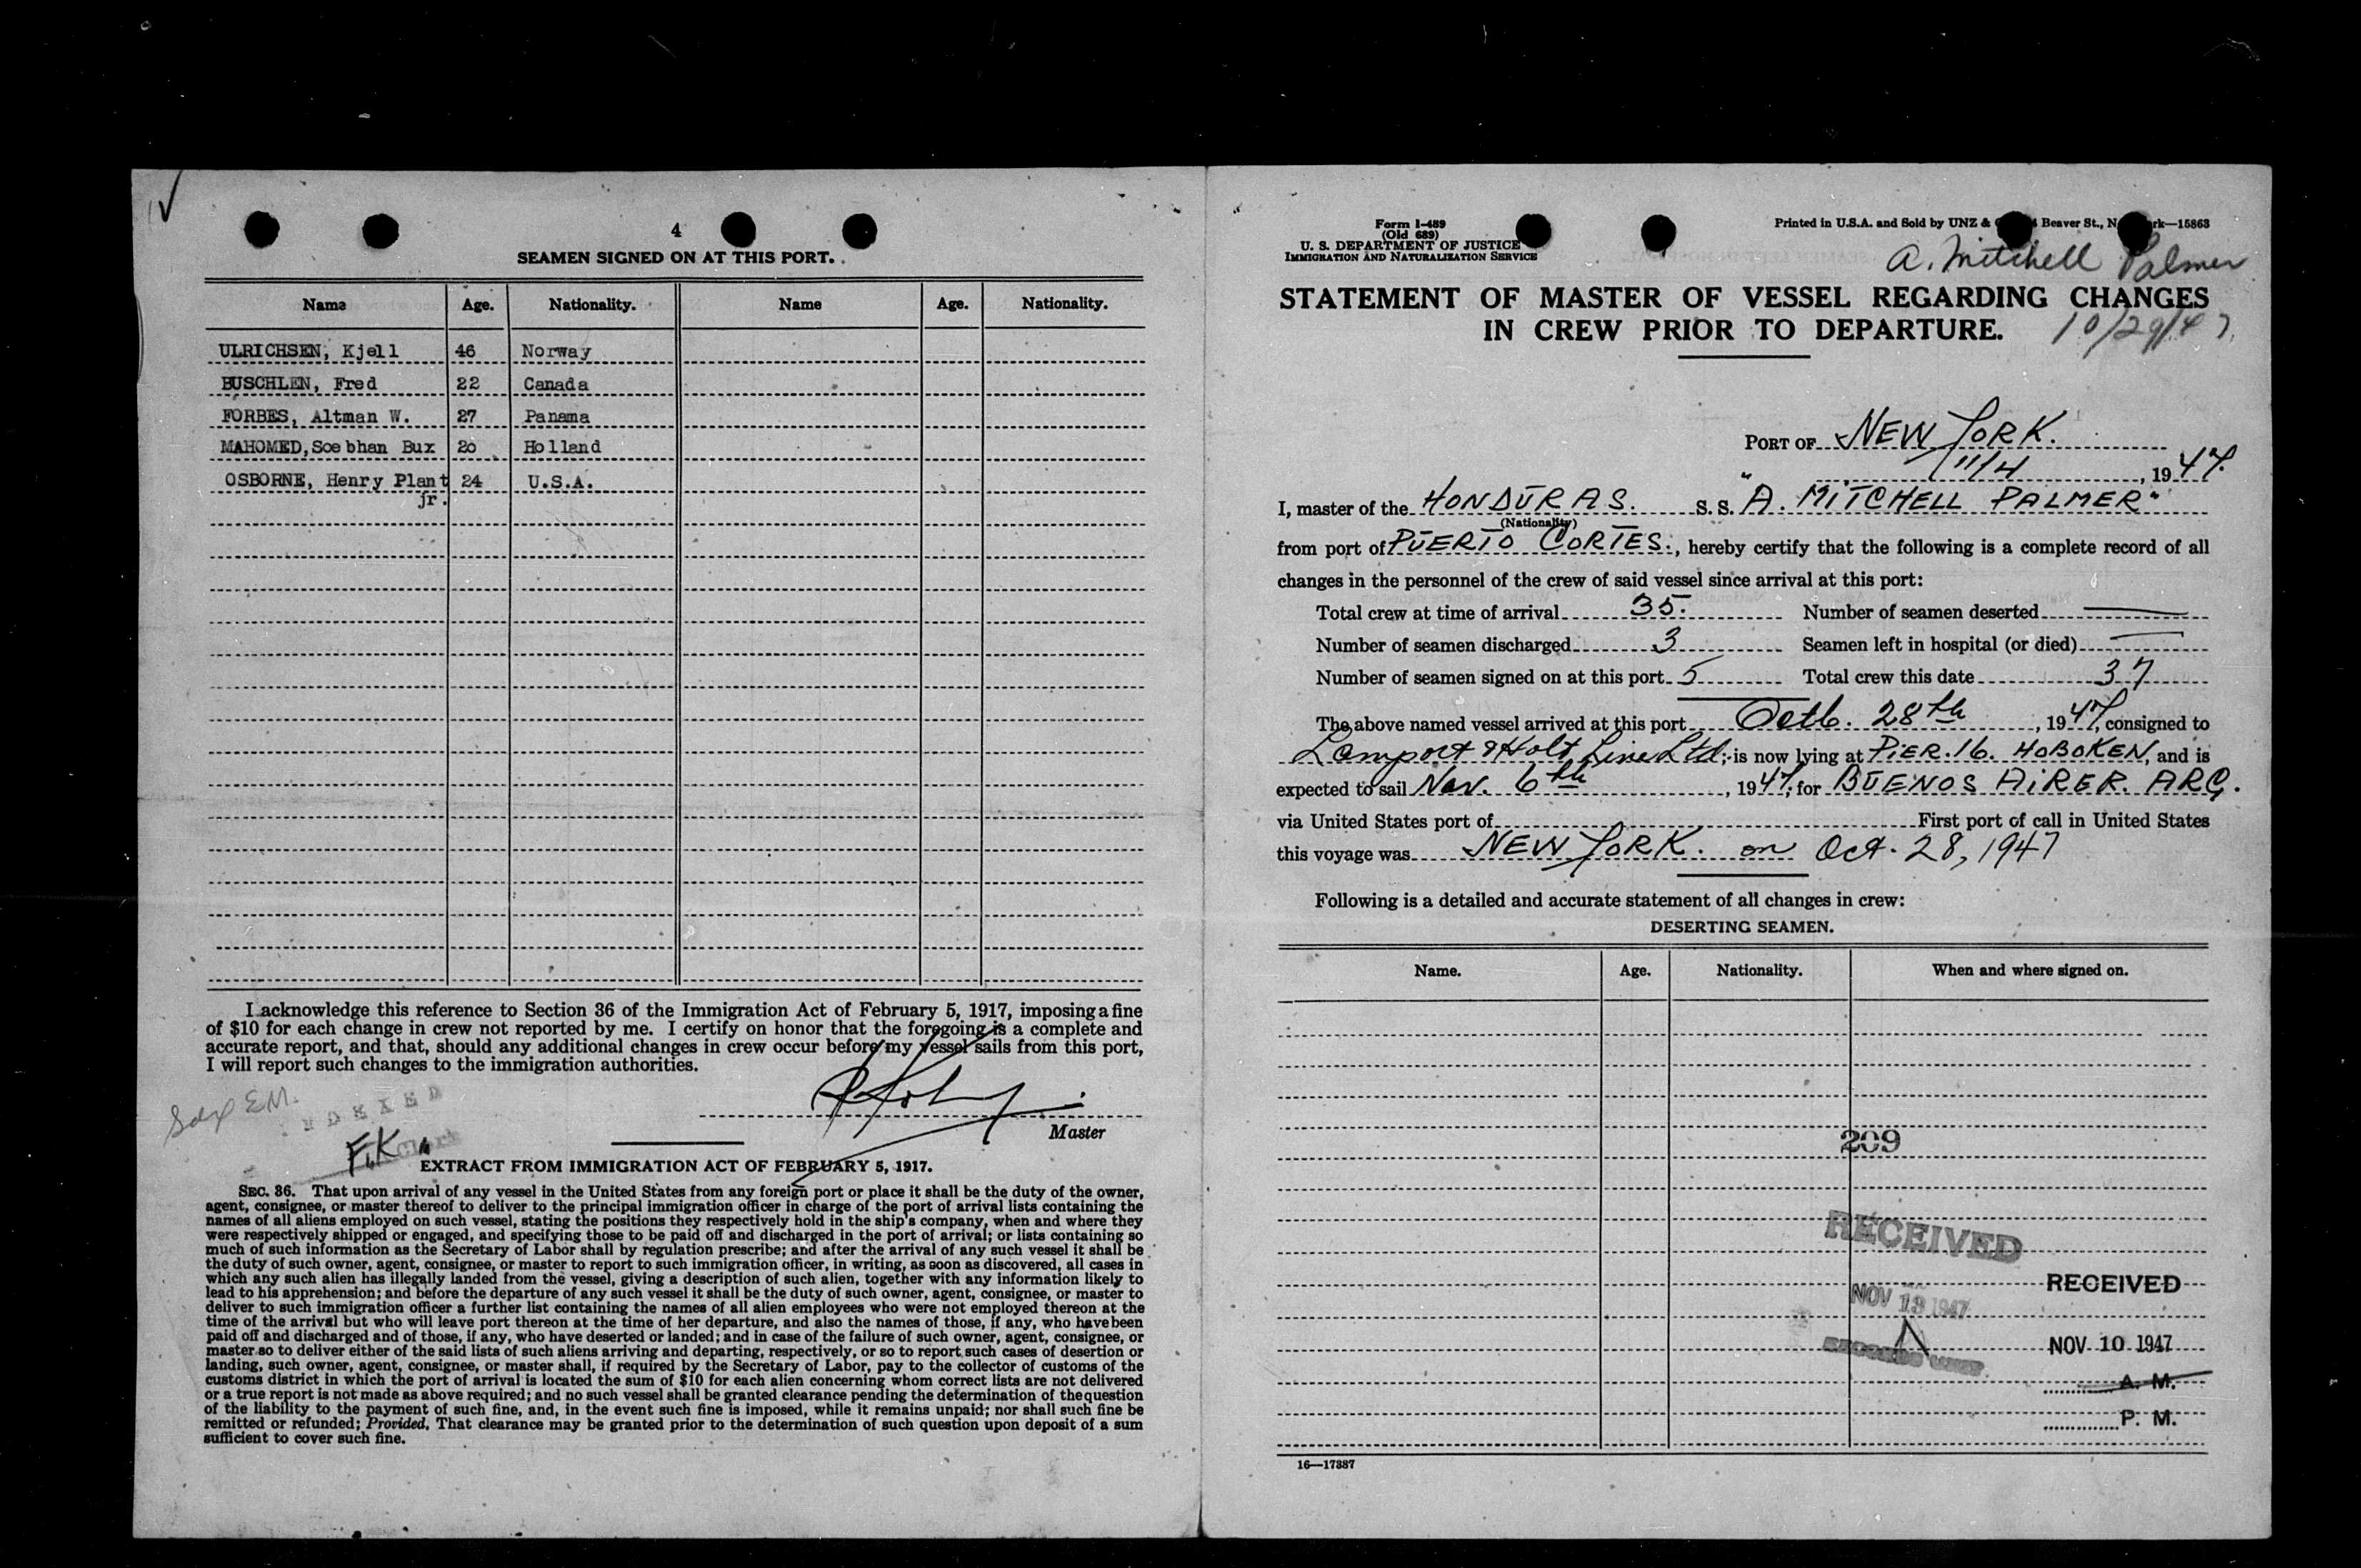 4
SEAMEN SIGNED ON AT THIS PORT.
Name Age. Nationality. Name Age. Nationality.
ULRICHSEN, Kjell 46 Norway
BUSCHLEN, Fred 22 Canada
FORBES, Altman W. 27 Panama
MAHOMED, Soebhan Bux 20 Holland
OSBORNE, Henry Plant 24 U.S.A.
jr.
I acknowledge this reference to Section 36 of the Immigration Act of February 5, 1917, imposing a fine
of $10 for each change in crew not reported by me. I certify on honor that the foregoing is a complete and
accurate report, and that, should any additional changes in crew occur before my vessel sails from this port,
I will report such changes to the immigration authorities.
Master
F.K
EXTRACT FROM IMMIGRATION ACT OF FEBRUARY 5, 1917.
SEC. 36. That upon arrival of any vessel in the United States from any foreign port or place it shall be the duty of the owner,
agent, consignee, or master thereof to deliver to the principal immigration officer in charge of the port of arrival lists containing the
names of all aliens employed on such vessel, stating the positions they respectively hold in the ship's company, when and where they
were respectively shipped or engaged, and specifying those to be paid off and discharged in the port of arrival; or lists containing so
much of such information as the Secretary of Labor shall by regulation prescribe; and after the arrival of any such vessel it shall be
the duty of such owner, agent, consignee, or master to report to such immigration officer, in writing, as soon as discovered, all cases in
which any such alien has illegally landed from the vessel, giving a description of such alien, together with any information likely to
lead to his apprehension; and before the departure of any such vessel it shall be the duty of such owner, agent, consignee, or master to
deliver to such immigration officer a further list containing the names of all alien employees who were not employed thereon at the
time of the arrival but who will leave port thereon at the time of her departure, and also the names of those, if any, who have been
paid off and discharged and of those, if any, who have deserted or landed; and in case of the failure of such owner, agent, consignee, or
master so to deliver either of the said lists of such aliens arriving and departing, respectively, or so to report such cases of desertion or
landing, such owner, agent, consignee, or master shall, if required by the Secretary of Labor, pay to the collector of customs of the
customs district in which the port of arrival is located the sum of $10 for each alien concerning whom correct lists are not delivered
or a true report is not made as above required; and no such vessel shall be granted clearance pending the determination of the question
of the liability to the payment of such fine, and, in the event such fine is imposed, while it remains unpaid; nor shall such fine be
remitted or refunded; Provided, That clearance may be granted prior to the determination of such question upon deposit of a sum
sufficient to cover such fine.
Form I-489
(Old 689)
U. S. DEPARTMENT OF JUSTICE
IMMIGRATION AND NATURALIZATION SERVICE
Printed in U.S.A. and Sold by UNZ & Beaver St., N rk—15863
A. Mitchell Palmer
STATEMENT OF MASTER OF VESSEL REGARDING CHANGES
IN CREW PRIOR TO DEPARTURE.
10/29/47.
PORT OF NEW YORK.
11/4, 1947.
I, master of the HONDURAS. S. S. "A. MITCHELL PALMER"
(Nationality)
from port of PUERTO CORTES., hereby certify that the following is a complete record of all
changes in the personnel of the crew of said vessel since arrival at this port:
Total crew at time of arrival 35. Number of seamen deserted —
Number of seamen discharged 3 Seamen left in hospital (or died) —
Number of seamen signed on at this port 5 Total crew this date 37
The above named vessel arrived at this port Octb. 28th, 1947, consigned to
Lamport & Holt Line Ltd; is now lying at PIER. 16. HOBOKEN, and is
expected to sail Nov. 6th, 1947; for BUENOS AIRER. ARG.
via United States port of First port of call in United States
this voyage was NEW YORK. on Oct. 28, 1947
Following is a detailed and accurate statement of all changes in crew:
DESERTING SEAMEN.
Name. Age. Nationality. When and where signed on.
209
RECEIVED
RECEIVED
NOV 13 1947
NOV 10 1947
A. M.
P. M.
16—17887